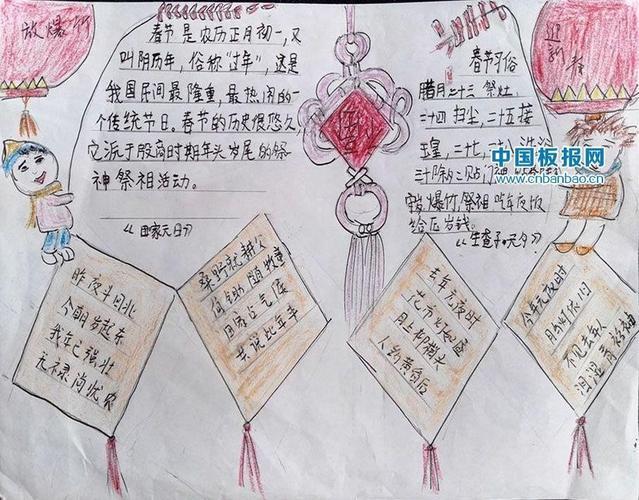 放爆竹
春节是农历正月初一,又
叫阴历年,俗称"过年",这是
我国民间最隆重,最热闹的一
个传统节日。春节的历史很悠久,
它源于殷商时期年头岁尾的祭
神祭祖活动。
春
迎新春
春节习俗
腊月二十三 祭灶,
二十四 扫尘,二十五接
玉皇,二十七,
中国板报网
www.cnbanbao.cn
三十
爆竹,祭祖 吃年夜饭
给压岁钱。
《田家元日》
昨夜斗回北
今朝岁起东
我年已强壮
无禄尚忧农
桑野就耕父
荷锄随牧童
田家占气候
共说此年丰
《生查子·元夕》
去年元夜时
花市灯如昼
月上柳梢头
人约黄昏后
今年元夜时
月与灯依旧
不见去年人
泪湿青衫袖